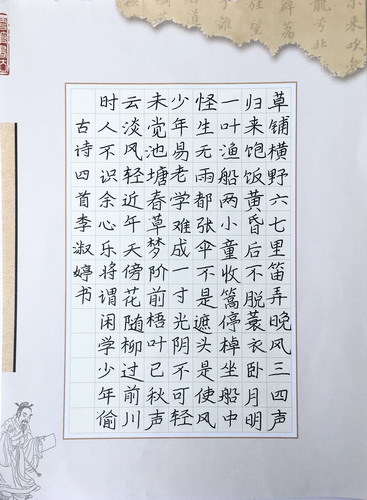 草铺横野六七里笛弄晚风三四声
归来饱饭黄昏后不脱蓑衣卧月明
一叶渔船两小童收篙停棹坐船中
怪生无雨都张伞不是遮头是使风
少年易老学难成一寸光阴不可轻
未觉池塘春草梦阶前梧叶已秋声
云淡风轻近午天傍花随柳过前川
时人不识余心乐将谓闲学少年偷
古诗四首李淑婷书